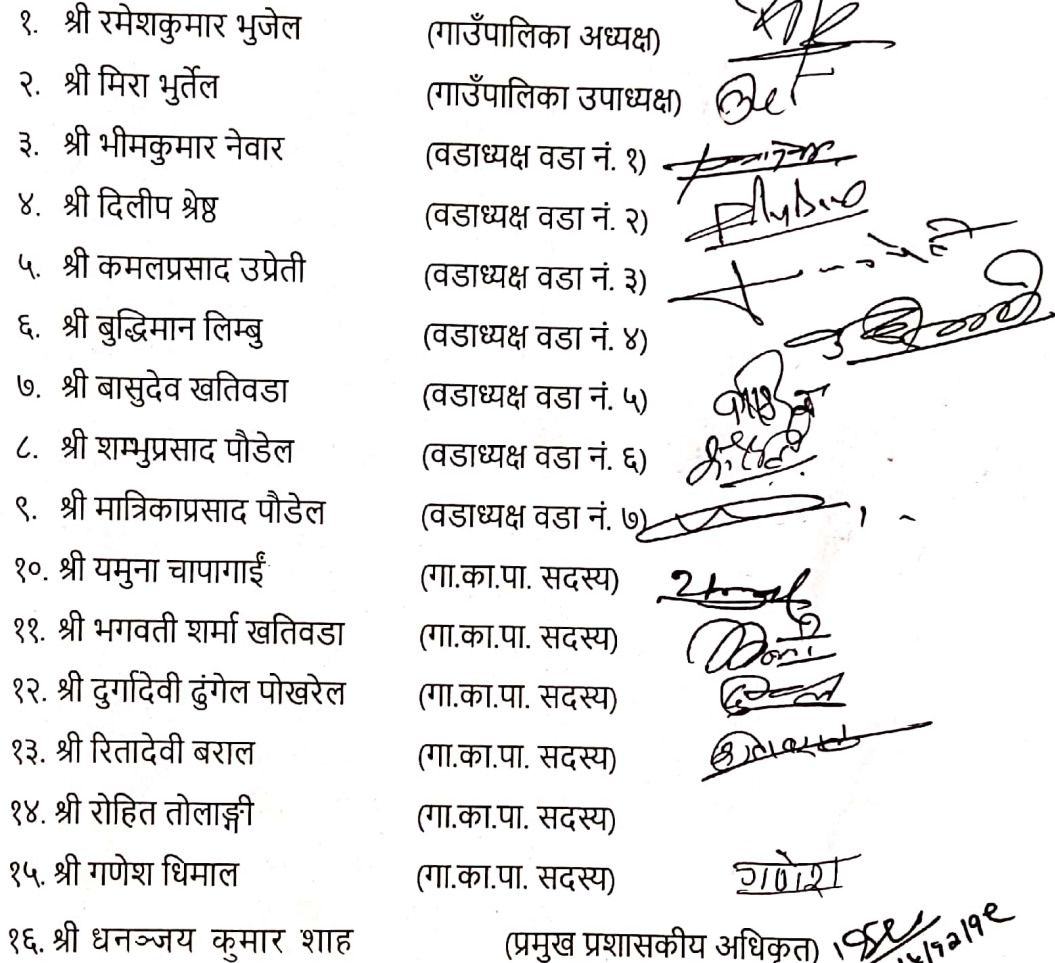 १. श्री रमेशकुमार भुजेल (गाउँपालिका अध्यक्ष)
२. श्री मिरा भुर्तेल (गाउँपालिका उपाध्यक्ष)
३. श्री भीमकुमार नेवार (वडाध्यक्ष वडा नं. १)
४. श्री दिलीप श्रेष्ठ (वडाध्यक्ष वडा नं. २)
५. श्री कमलप्रसाद उप्रेती (वडाध्यक्ष वडा नं. ३)
६. श्री बुद्धिमान लिम्बु (वडाध्यक्ष वडा नं. ४)
७. श्री बासुदेव खतिवडा (वडाध्यक्ष वडा नं. ५)
८. श्री शम्भुप्रसाद पौडेल (वडाध्यक्ष वडा नं. ६)
९. श्री मात्रिकाप्रसाद पौडेल (वडाध्यक्ष वडा नं. ७)
१०. श्री यमुना चापागाईं (गा.का.पा. सदस्य)
११. श्री भगवती शर्मा खतिवडा (गा.का.पा. सदस्य)
१२. श्री दुर्गादेवी ढुंगेल पोखरेल (गा.का.पा. सदस्य)
१३. श्री रितादेवी बराल (गा.का.पा. सदस्य)
१४. श्री रोहित तोलाङ्गी (गा.का.पा. सदस्य)
१५. श्री गणेश धिमाल (गा.का.पा. सदस्य) गणेश
१६. श्री धनञ्जय कुमार शाह (प्रमुख प्रशासकीय अधिकृत)